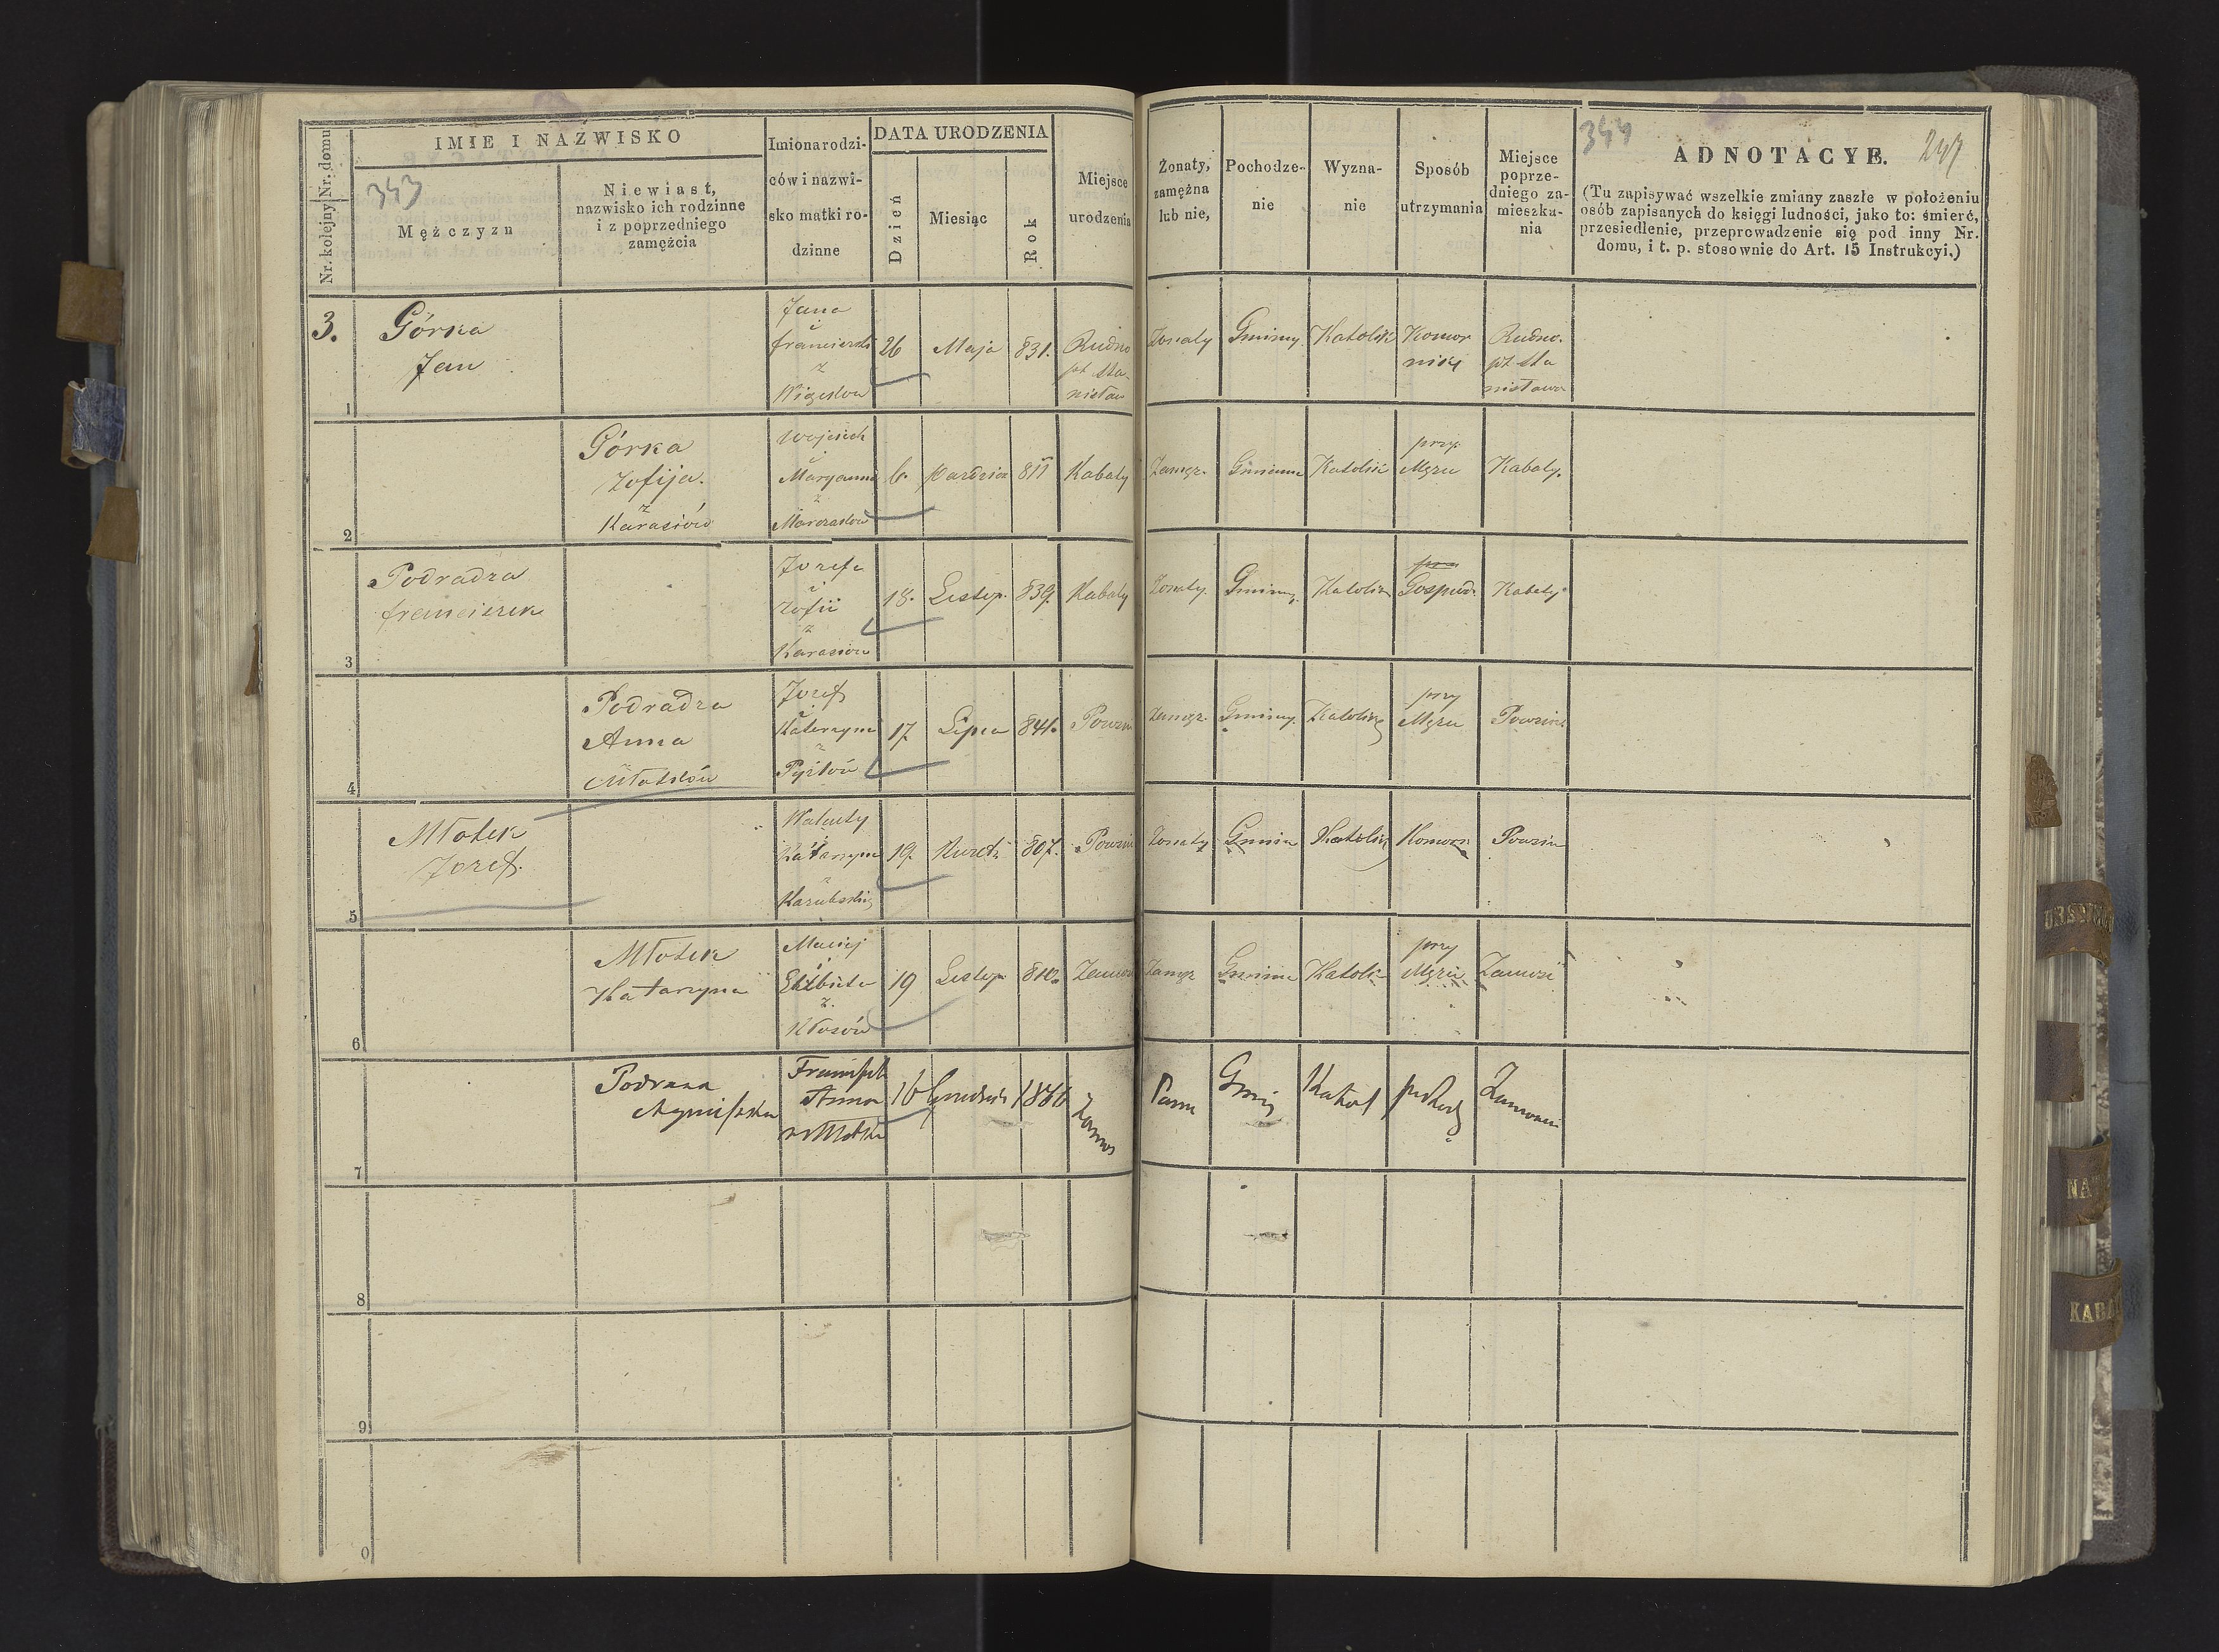 343
344
247
Nr. kolejny Nr. domu
IMIE I NAZWISKO
Mężczyzn
Niewiast,
nazwisko ich rodzinne
i z poprzedniego
zamężcia
Imiona rodzi-
ców i nazwi-
sko matki ro-
dzinne
DATA URODZENIA
Dzień
Miesiąc
Rok
Miejsce
urodzenia
Żonaty,
zamężna
lub nie,
Pochodze-
nie
Wyzna-
nie
Sposób
utrzymania
Miejsce
poprze-
dniego za-
mieszka-
nia
ADNOTACYE.
(Tu zapisywać wszelkie zmiany zaszłe w położeniu
osób zapisanych do księgi ludności, jako to: śmierć,
przesiedlenie, przeprowadzenie się pod inny Nr.
domu, i t. p. stosownie do Art. 15 Instrukcyi.)
3.
1
Górka
Jan
Jana
i
z
26
Maja
831.
Rudno
Żonaty
Gminny
Katolik
Komor
nik
Rudno.
2
Górka
Zofija.
z
Karasiów
Wojciech
i
Maryanna
z
6.
811
Kabaty
Zamęż.
Gminna
Katolik
przy
Mężu
Kabaty.
3
Podradza
franciszek
Jozefa
i
Zofii
z
Karasiow
18.
Listop.
839.
Kabaty
Zonaty.
Gminny.
Katolik
Gospod.
Kabaty
4
Podradza
Anna
Młotków
Jozef
i
Katarzyna
z
17
Lipca
841.
Powsin
Zamęż.
Gminny.
Katolik
przy
Mężu
Powsin
5
Młotek
Jozef.
Katarzyna
z
19.
807.
Powsin
Zonaty
Gmin
Katolik
Komor
Powsin
6
Młotek
Katarzyna
Maciej
i
Elżbieta
z
Kłosów
19
Listop
Zamęż
Gminna
Katolik
przy
Mężu
7
Anna
16
Panna
Gmin
Katol
8
9
0
URSYN
NA
KABA